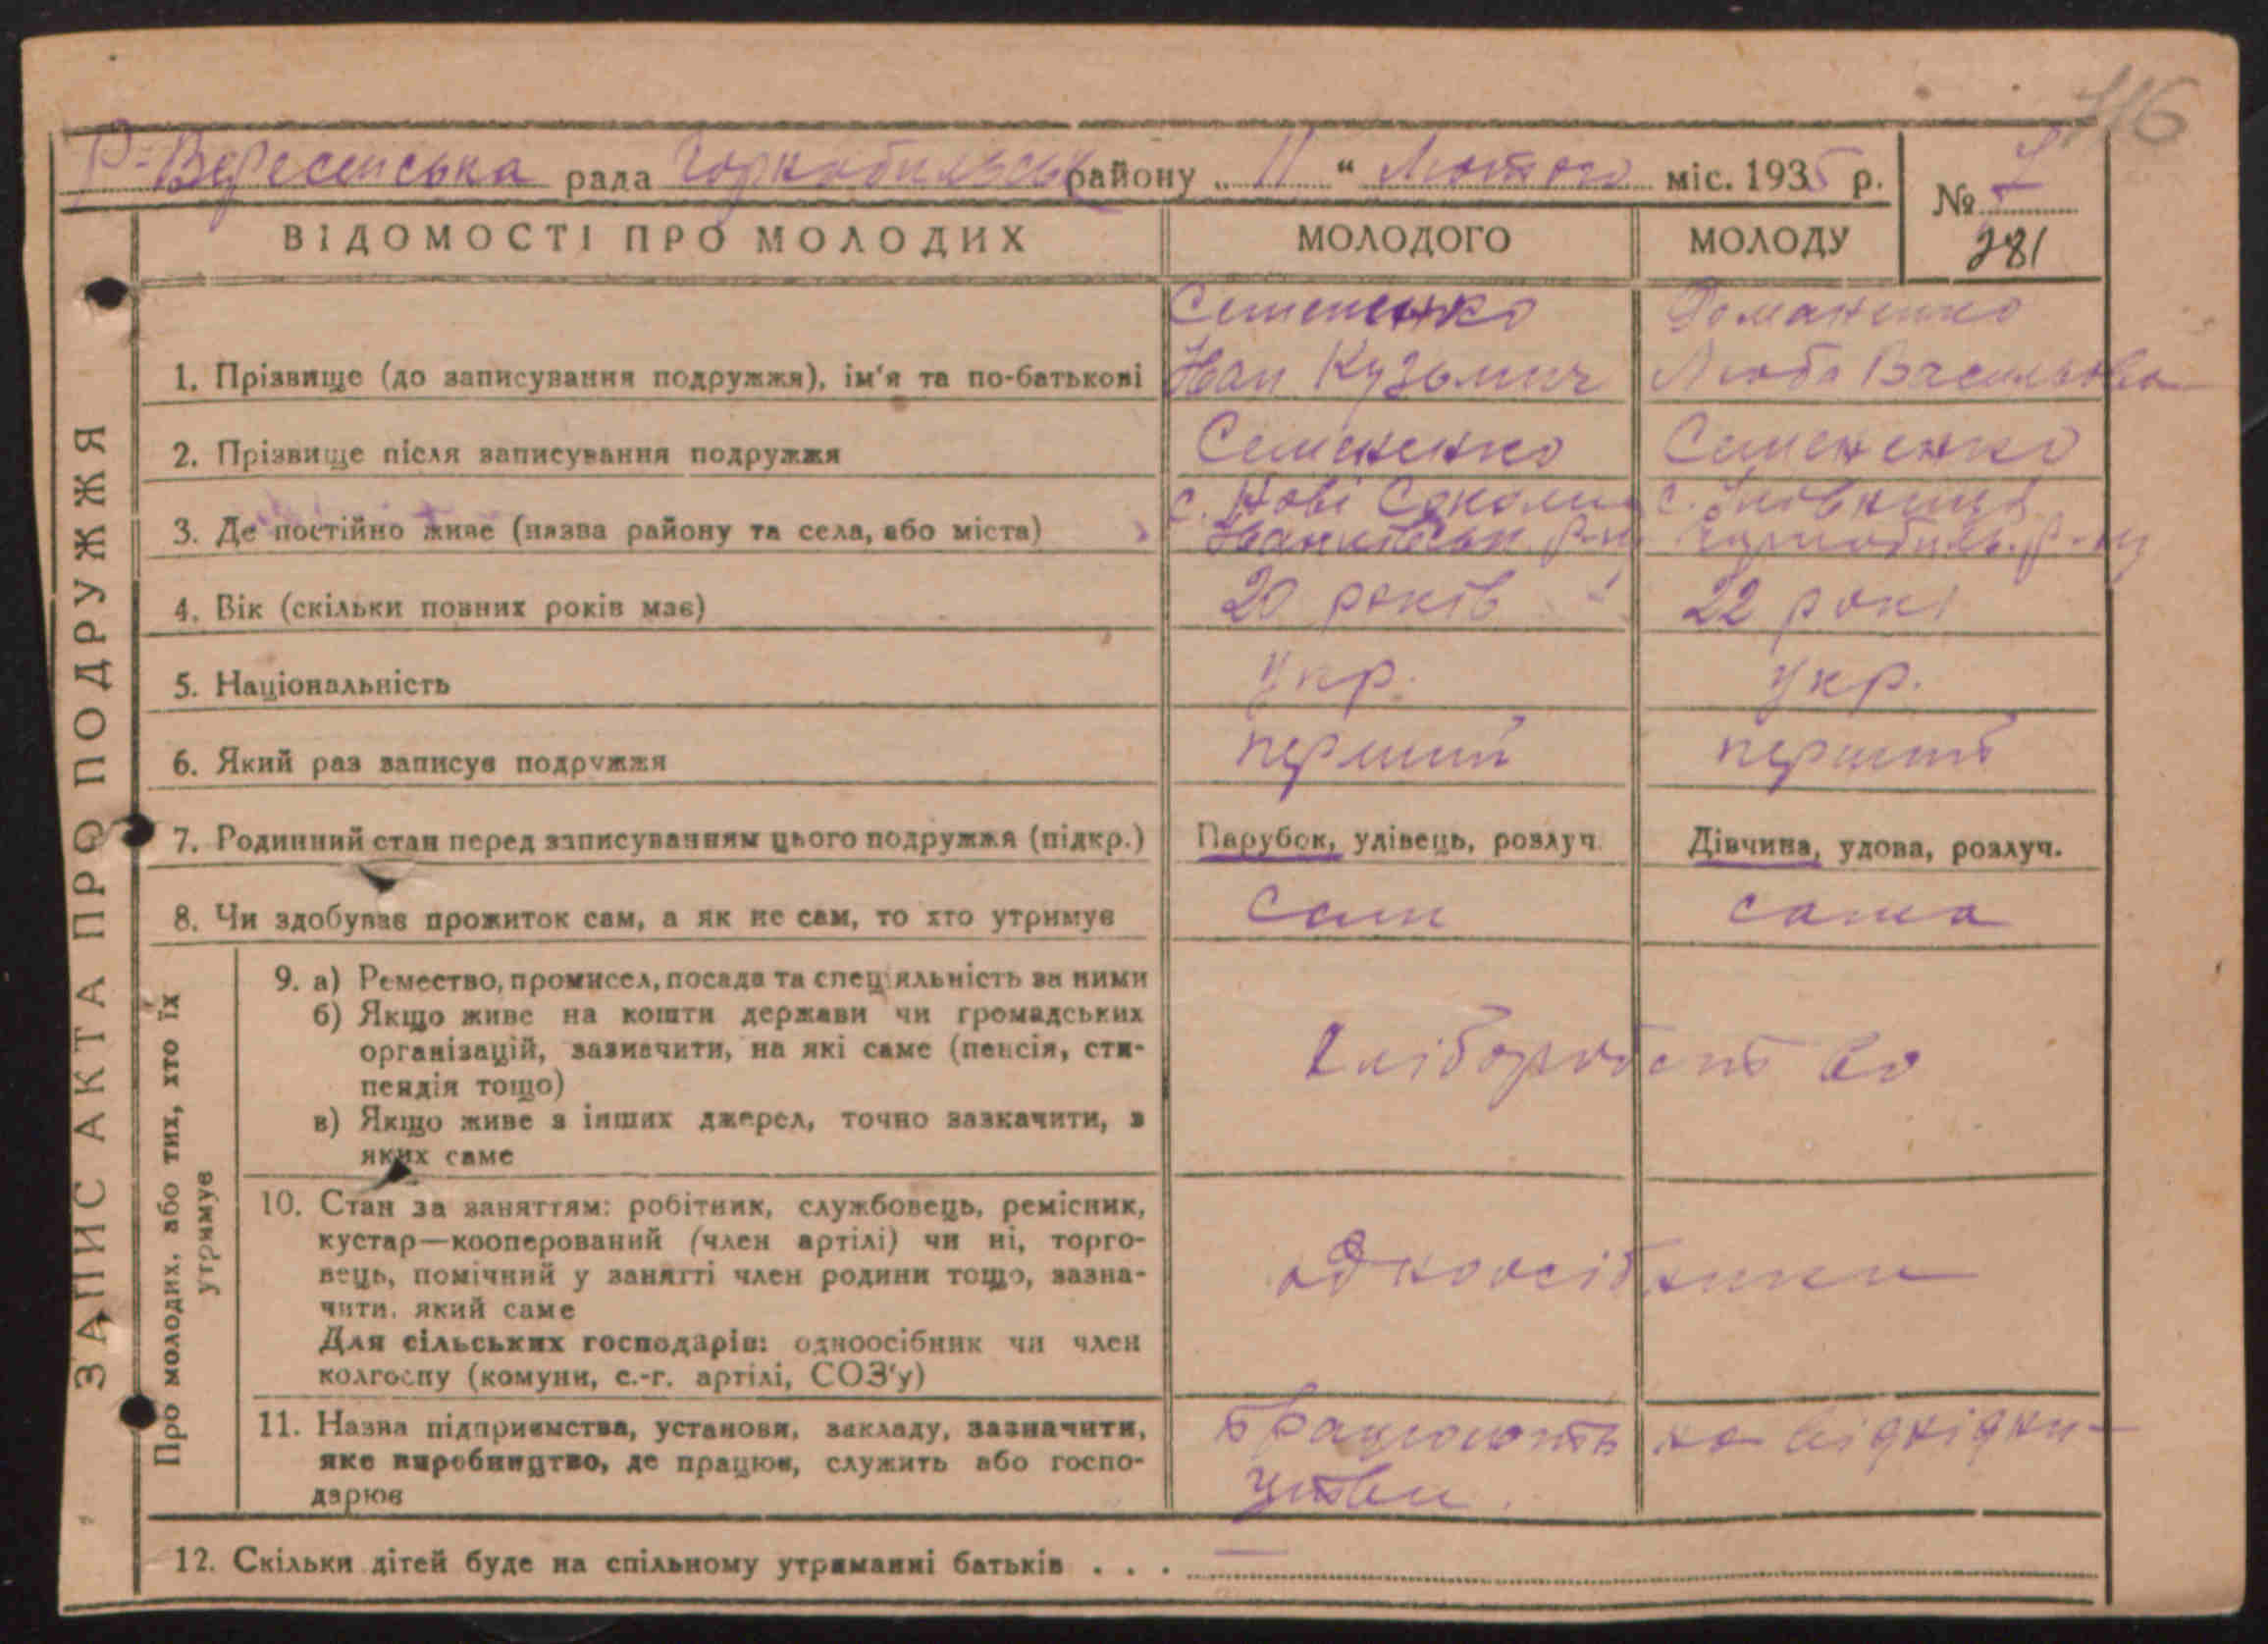 116
Р-Вересенська рада Чорнобильськ району „ 11 “ Лютого міс. 1935 р.
№ 7
281
ВІДОМОСТІ ПРО МОЛОДИХ
МОЛОДОГО
МОЛОДУ
ЗАПИС АКТА ПРО ПОДРУЖЖЯ
1. Прізвище (до записування подружжя), ім'я та по-батькові
Семененко
Іван Кузьмич
Романенко
Люба Васильовна
2. Прізвище після записування подружжя
Семененко
Семененко
3. Де постійно живе (назва району та села, або міста)
с. Нові Соколи
Іванківськ. р-ну
с.
чорнобиль. р-ну
4. Вік (скільки повних років має)
20 років
22 рокі
5. Національність
Укр.
Укр.
6. Який раз записує подружжя
перший
перший
7. Родинний стан перед записуванням цього подружжя (підкр.)
Парубок, удівець, розлуч.
Дівчина, удова, розлуч.
8. Чи здобував прожиток сам, а як не сам, то хто утримує
Сам
сама
Про молодих, або тих, хто їх
утримує
9. а) Ремество, промисел, посада та спеціяльність за ними
б) Якщо живе на кошти держави чи громадських
організацій, зазначити, на які саме (пенсія, сти-
пендія тощо)
в) Якщо живе з інших джерел, точно зазначити, з
яких саме
хліборобство
10. Стан за заняттям: робітник, службовець, ремісник,
кустар—кооперований (член артілі) чи ні, торго-
вець, помічний у занятті член родини тощо, зазна-
чити, який саме
Для сільських господарів: одноосібник чи член
колгоспу (комуни, с.-г. артілі, СОЗ'у)
одноосібники
11. Назва підприємства, установи, закладу, зазначити,
яке виробництво, де працює, служить або госпо-
дарює
працюють на
12. Скільки дітей буде на спільному утриманні батьків . . . —